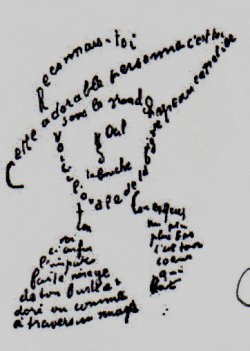 Reconnais-toi
Cette adorable personne c'est toi
Sous le grand chapeau canotier
Œil
Nez
La bouche
Voici l'ovale de ta figure
Ton cou exquis
Voici enfin
l'imparfaite image
de ton buste
adoré vu comme
à travers un nuage
Un peu
plus bas
c'est ton
coeur
qui
bat